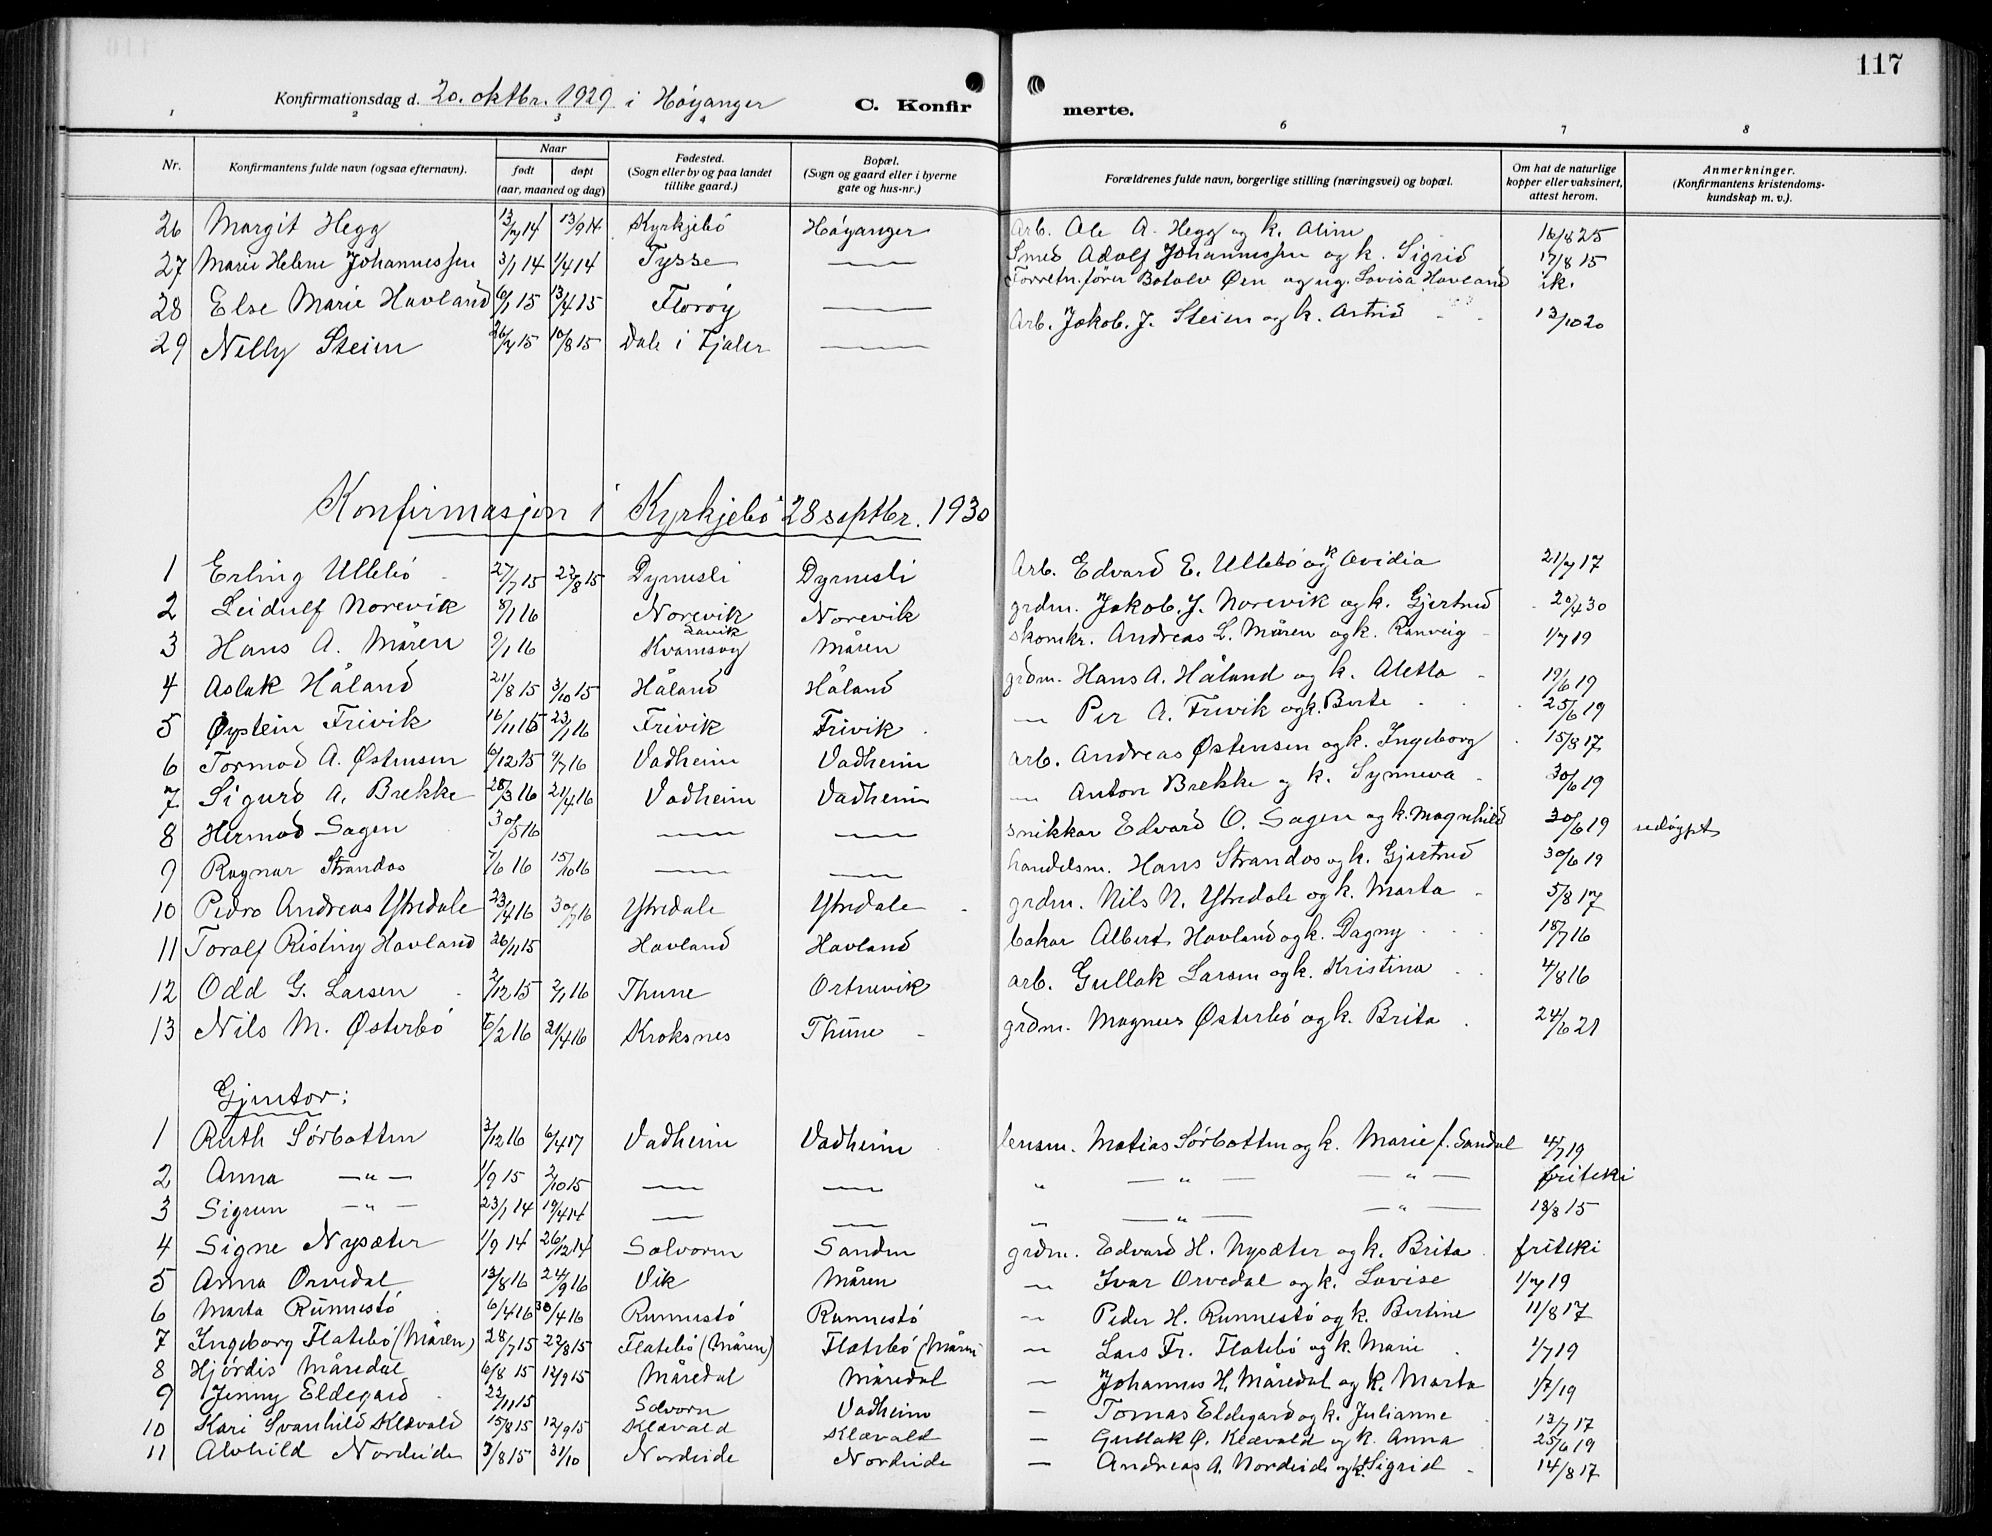 117
Konfirmationsdag d. 20. oktbr. 1929 i Høyanger C. Konfirmerte.
1 2 3 4 6 7 8
Nr. Konfirmantens fulde navn (ogsaa efternavn). Naar født døpt (aar, maaned og dag) Fødested. (Sogn eller by og paa landet tillike gaard.) Bopæl. (Sogn og gaard eller i byerne gate og hus-nr.) Forældrenes fulde navn, borgerlige stilling (næringsvei) og bopæl. Om hat de naturlige kopper eller vaksinert, attest herom. Anmerkninger. (Konfirmantens kristendomskundskap m. v.).
26 Margit Hegg 13/7 14 13/9 14 Kyrkjebö Höyanger Arb. Ole A. Hegg og k. Aline 16/8 25
27 Marie Helene Johannessen 3/1 14 1/4 14 Tysse — Smed Adolf Johannessen og k. Sigrid 17/8 15
28 Else Marie Hovland 6/1 15 13/4 15 Florøy — Forretn.fører Botolv Øen og ug. Lovisa Hovland ik.
29 Nelly Steien 26/7 15 10/8 15 Dale i Fjaler — Arb. Jakob. J. Steien og k. Astrid 13/10 20
Konfirmasjon i Kyrkjebö 28 septbr. 1930
1 Erling Ullebö 27/7 15 22/8 15 Dyrnesli Dyrnesli Arb. Edvard E. Ullebö og k Ovidia 21/7 17
2 Leidulf Norevik 8/1 16 Norevik Norevik grdm. Jakob. J. Norevik og k. Gjertrud 20/4 30
3 Hans A. Måren 9/1 16 Lavik Kvamsøy Måren skomkr. Andreas L. Måren og k. Ranveig 1/7 19
4 Aslak Håland 21/8 15 3/10 15 Håland Håland grdm. Hans A. Håland og k. Aletta 19/6 19
5 Øystein Frivik 16/11 15 23/1 16 Frivik Frivik — Per A. Frivik og k. Berte 25/6 19
6 Tormod A. Østensen 6/12 15 9/7 16 Vadheim Vadheim arb. Andreas Østensen og k. Ingeborg 15/8 17
7 Sigurd A. Brekke 28/3 16 21/4 16 Vadheim Vadheim — Anton Brekke og k. Synneva 30/6 19
8 Hermod Sagen 30/5 16 — — snikkar Edvard O. Sagen og k. Magnhild 30/6 19 udøypt
9 Ragnar Strandos 7/6 16 15/10 16 — — handelsm. Hans Strandos og k. Gjertrud 30/6 19
10 Pedro Andreas Ytredale 23/4 16 30/7 16 Ytredale Ytredale grdm. Nils N. Ytredale og k. Marta 5/8 17
11 Toralf Risting Hovland 26/11 15 Hovland Hovland bakar Albert Hovland og k. Dagny 18/7 16
12 Odd G. Larsen 2/12 15 2/1 16 Thune Ortnevik arb. Gullak Larsen og k. Kristina 4/8 16
13 Nils M. Østerbö 6/2 16 21/4 16 Kroksnes Thune grdm. Magnus Østerbö og k. Brita 24/6 21
Gjentor:
1 Ruth Sörbotten 3/12 16 6/4 17 Vadheim Vadheim lensm. Matias Sörbotten og k. Marie f. Sandal 4/7 19
2 Anna —"— 1/9 15 2/10 15 — — " —"— —"— friteki
3 Sigrun —"— 23/1 14 19/4 14 — — — —"— —"— 18/8 15
4 Signe Nysæter 1/9 14 26/12 14 Solvorn Sanden grdm. Edvard H. Nysæter og k. Brita friteki
5 Anna Orvedal 13/8 16 24/9 16 Vik Måren — Ivar Orvedal og k. Lovise 1/7 19
6 Marta Runnestö 6/4 16 30/4 16 Runnestö Runnestö — Peder H. Runnestö og k. Bertine 11/8 17
7 Ingeborg Flatebö (Måren) 28/7 15 22/8 15 Flatebö (Måren) Flatebö (Måren — Lars Fr. Flatebö og k. Marie 1/7 19
8 Hjördis Måredal 6/8 15 12/9 15 Måredal Måredal — Johannes H. Måredal og k. Marta 1/7 19
9 Jenny Eldegard 22/11 15 Solvorn Vadheim — Tomas Eldegard og k. Julianne 13/7 17
10 Kari Svanhild Klævold 15/8 15 12/9 15 Klævold Klævold — Gullak Ø. Klævold og k. Anna 25/6 19
11 Alvhild Nordeide 3/8 15 31/10 Nordeide Nordeide — Andreas A. Nordeide og k. Sigrid 14/8 17